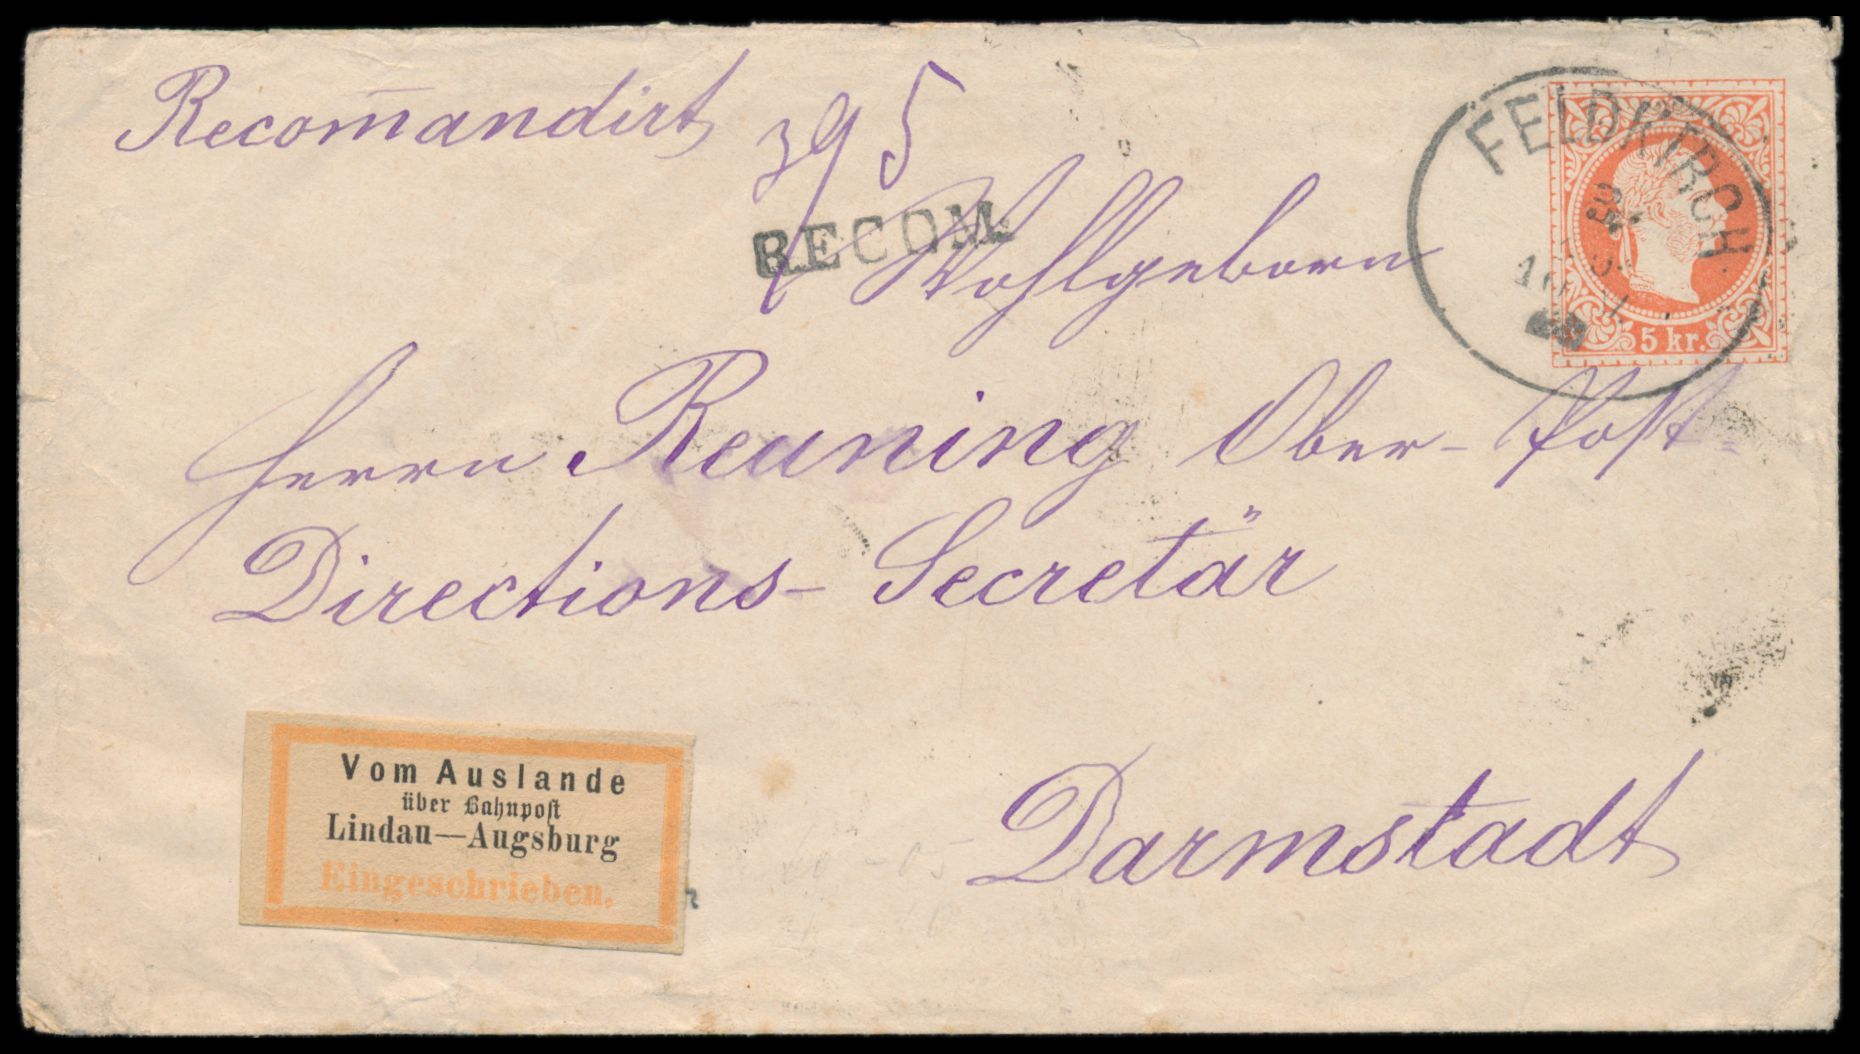 Recom̄andirt 395
RECOM.
FELDKIRCH
5 kr.
Wohlgeborn
Herrn Reuning Ober-Post-
Directions-Secretär
Darmstadt
Vom Auslande
über Bahnpost
Lindau—Augsburg
Eingeschrieben.